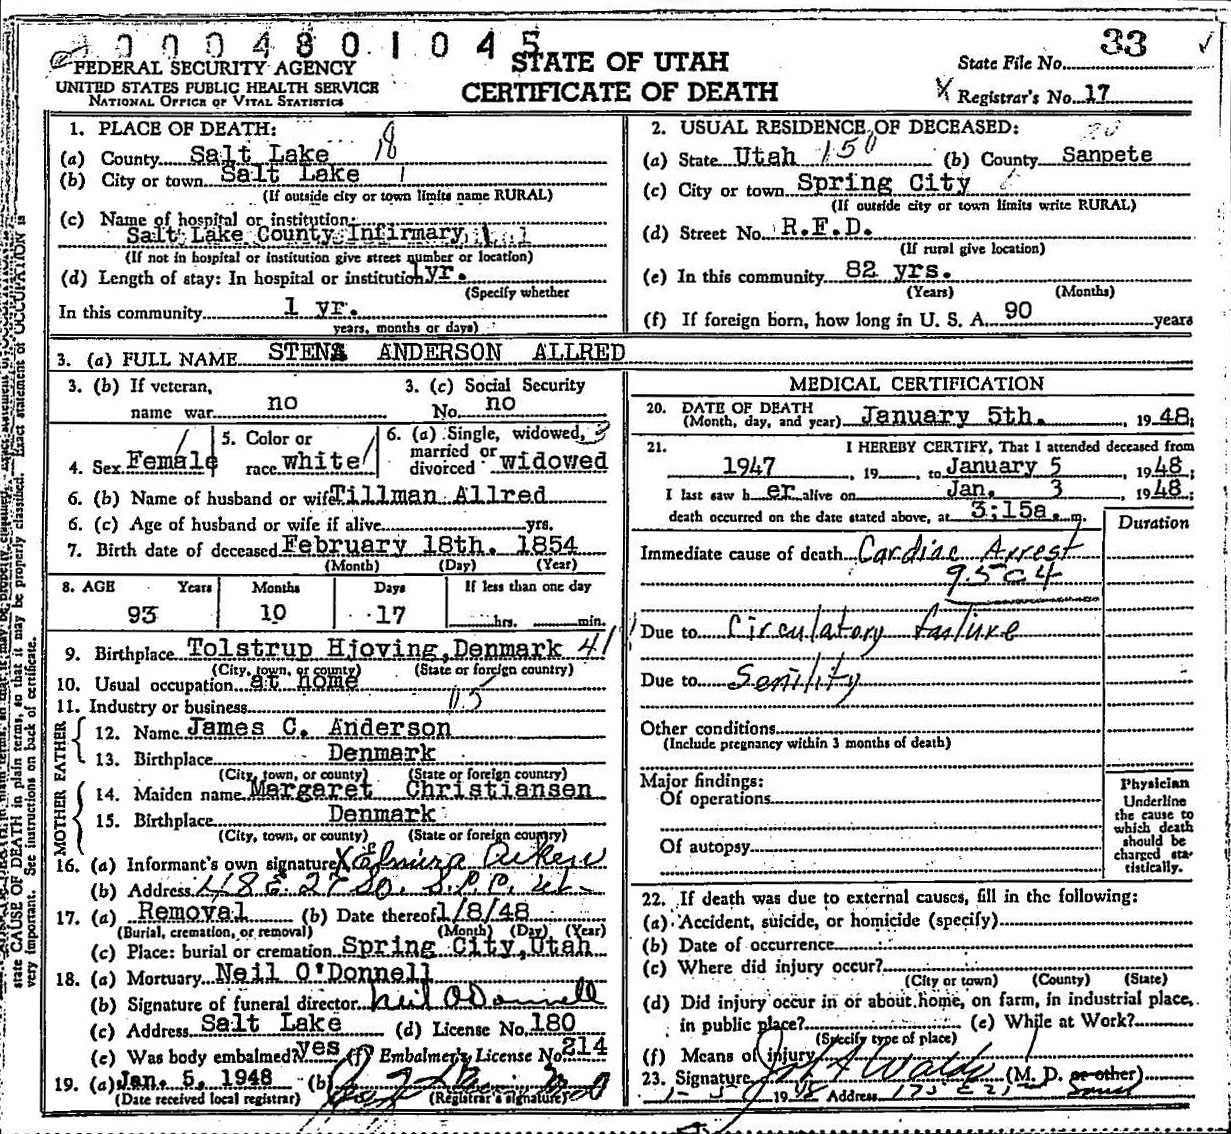 0004801045
STATE OF UTAH
CERTIFICATE OF DEATH
FEDERAL SECURITY AGENCY
UNITED STATES PUBLIC HEALTH SERVICE
NATIONAL OFFICE OF VITAL STATISTICS
State File No. 33
Registrar's No. 17
1. PLACE OF DEATH:
(a) County Salt Lake 18
(b) City or town Salt Lake 1
(If outside city or town limits name RURAL)
(c) Name of hospital or institution:
Salt Lake County Infirmary
(If not in hospital or institution give street number or location)
(d) Length of stay: In hospital or institution 1yr.
(Specify whether
In this community 1 yr.
years, months or days)
2. USUAL RESIDENCE OF DECEASED:
(a) State Utah 150 (b) County Sanpete
(c) City or town Spring City
(If outside city or town limits write RURAL)
(d) Street No. R.F.D.
(If rural give location)
(e) In this community 82 yrs.
(Years) (Months)
(f) If foreign born, how long in U. S. A. 90 years
3. (a) FULL NAME STENA ANDERSON ALLRED
3. (b) If veteran, 3. (c) Social Security
name war no No. no
4. Sex Female 5. Color or race white 6. (a) Single, widowed, married or divorced widowed
6. (b) Name of husband or wife Tillman Allred
6. (c) Age of husband or wife if alive yrs.
7. Birth date of deceased February 18th. 1854
(Month) (Day) (Year)
8. AGE Years Months Days If less than one day
93 10 17 hrs. min.
9. Birthplace Tolstrup Hjoving, Denmark 41
(City, town, or county) (State or foreign country)
10. Usual occupation at home
11. Industry or business
FATHER
12. Name James C. Anderson
13. Birthplace Denmark
(City, town, or county) (State or foreign country)
MOTHER
14. Maiden name Margaret Christiansen
15. Birthplace Denmark
(City, town, or county) (State or foreign country)
16. (a) Informant's own signature
(b) Address
17. (a) Removal (b) Date thereof 1/8/48
(Burial, cremation, or removal) (Month) (Day) (Year)
(c) Place: burial or cremation Spring City, Utah
18. (a) Mortuary Neil O'Donnell
(b) Signature of funeral director Neil O'Donnell
(c) Address Salt Lake (d) License No. 180
(e) Was body embalmed? yes (f) Embalmer's License No. 214
19. (a) Jan. 5, 1948 (b)
(Date received local registrar) (Registrar's signature)
MEDICAL CERTIFICATION
20. DATE OF DEATH
(Month, day, and year) January 5th. , 1948;
21. I HEREBY CERTIFY, That I attended deceased from
1947 , 19 , to January 5 , 1948;
I last saw her alive on Jan. 3 , 1948;
death occurred on the date stated above, at 3:15a. m.
Duration
Immediate cause of death Cardiac Arrest
95c4
Due to Circulatory failure
Due to Senility
Other conditions
(Include pregnancy within 3 months of death)
Major findings:
Of operations
Of autopsy
Physician
Underline
the cause to
which death
should be
charged sta-
tistically.
22. If death was due to external causes, fill in the following:
(a) Accident, suicide, or homicide (specify)
(b) Date of occurrence
(c) Where did injury occur?
(City or town) (County) (State)
(d) Did injury occur in or about home, on farm, in industrial place,
in public place? (e) While at Work?
(Specify type of place)
(f) Means of injury
23. Signature (M. D. or other)
19 48 Address
state CAUSE OF DEATH in plain terms, so that it may be properly classified. Exact statement of OCCUPATION is
very important. See instructions on back of certificate.